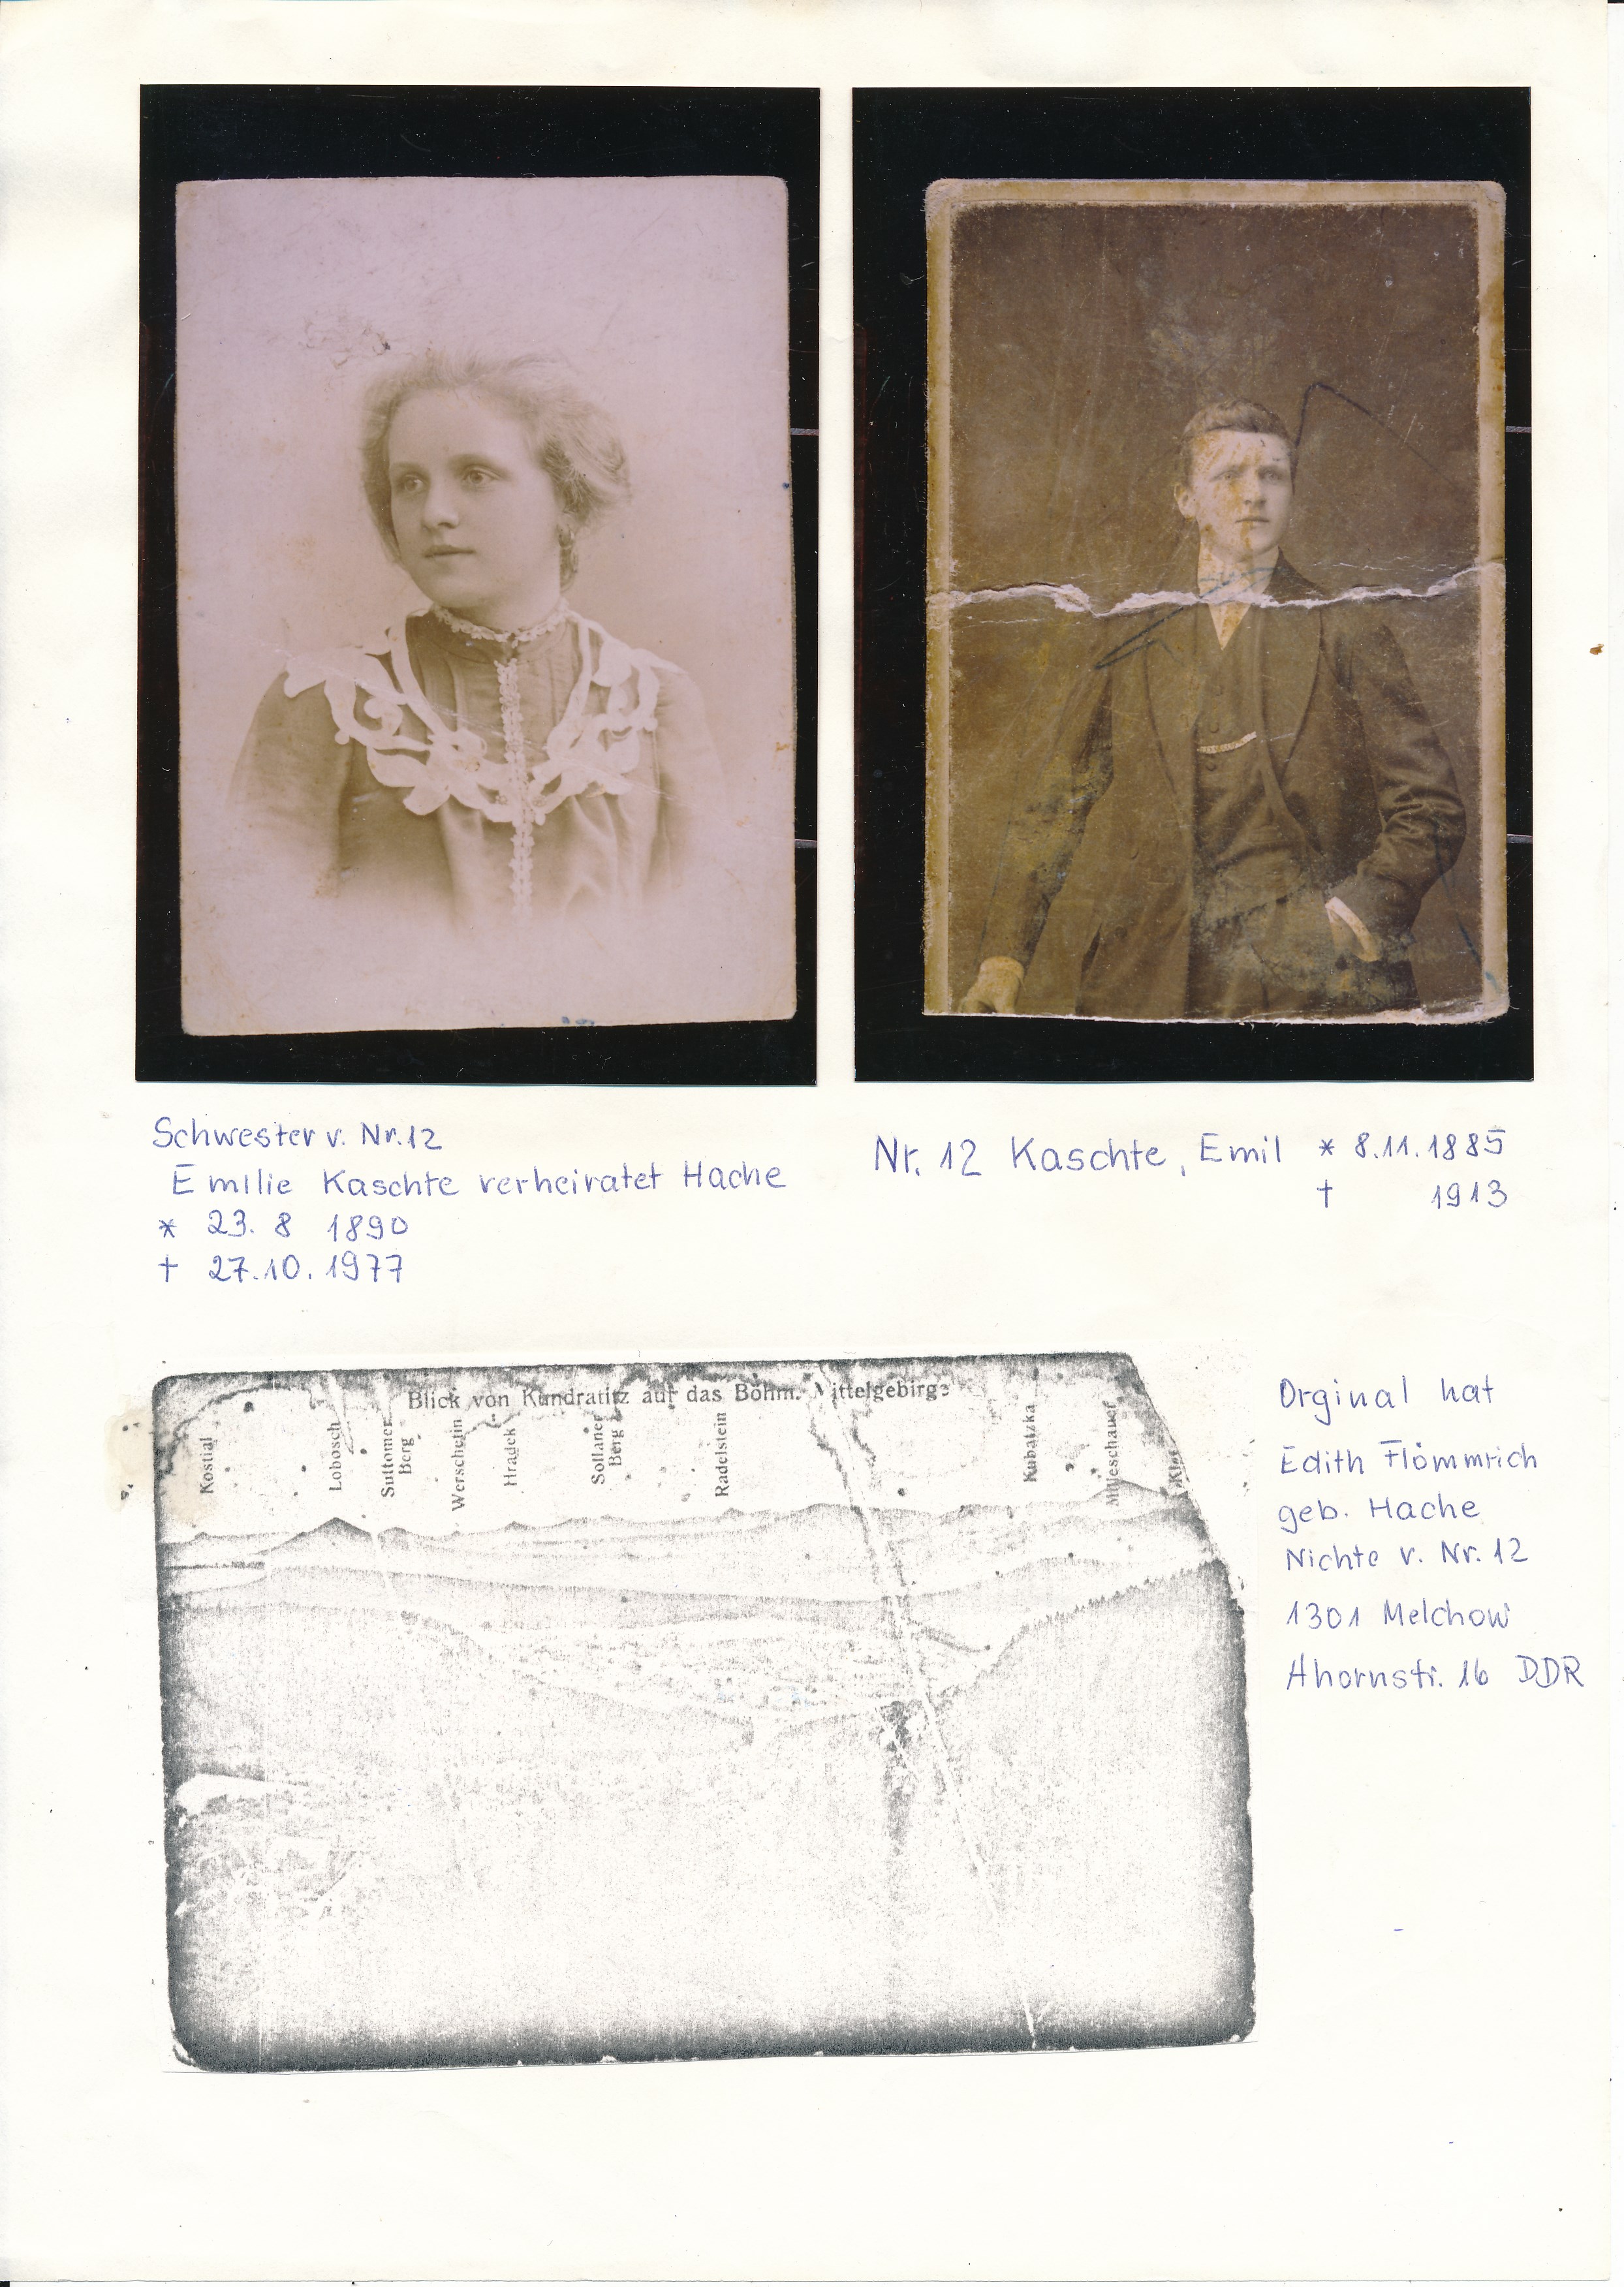 Schwester v. Nr. 12
Emilie Kaschte verheiratet Hache
* 23. 8 1890
† 27.10. 1977
Nr. 12 Kaschte, Emil * 8.11.1885
† 1913
Blick von Kundratitz auf das Böhm. Mittelgebirge
Kostial
Lobosch
Suttomer
Berg
Werschetin
Hradek
Sollaner
Berg
Radelstein
Kubatzka
Milleschauer
Orginal hat
Edith Flömmrich
geb. Hache
Nichte v. Nr. 12
1301 Melchow
Ahornstr. 16 DDR